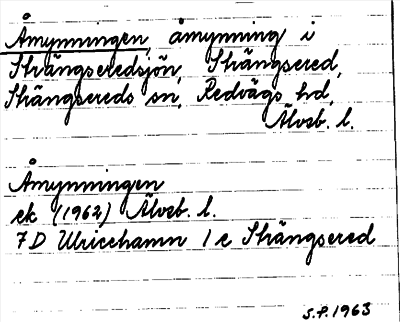 Åmynningen, åmynning i
Strängseredsjön, Strängsered,
Strängsereds sn, Redvägs hd,
Älvsb. l.
Åmynningen
ek (1962) Älvsb. l.
7D Ulricehamn 1 c Strängsered
S.P. 1963